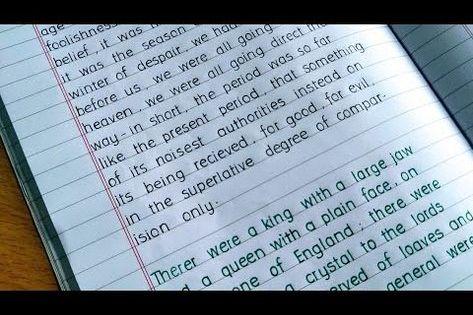 age
foolishness
belief, it was the
it was the season
winter of despair, we had
before us, we were all going
heaven, we were all going direct the
way- in short, the period was so far
like the present period, that something
of its noisest authorities instead on
its being recieved, for good, for evil,
in the superlative degree of compar-
ision only.
Therer were a king with a large jaw
a queen with a plain face, on
one of England; there were
a crystal to the lords
erved of loaves and
general were